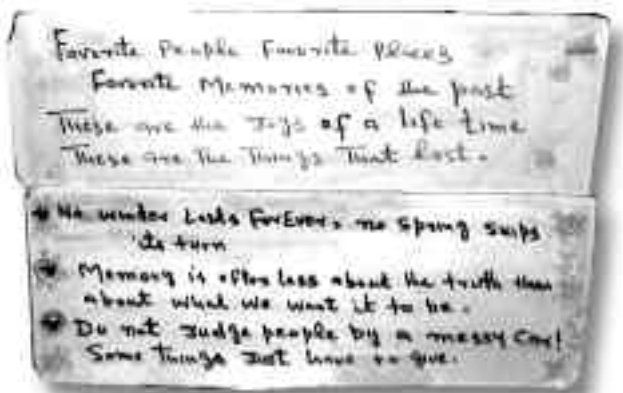 Favorite People Favorite Places
Favorite Memories of the past
These are the Joys of a life time
These are the Things That last.
No winter Lasts ForEver, no spring skips
its turn
Memory is often less about the truth than
about what we want it to be.
Do not Judge people by a messy Car!
Some Things Just have to give.